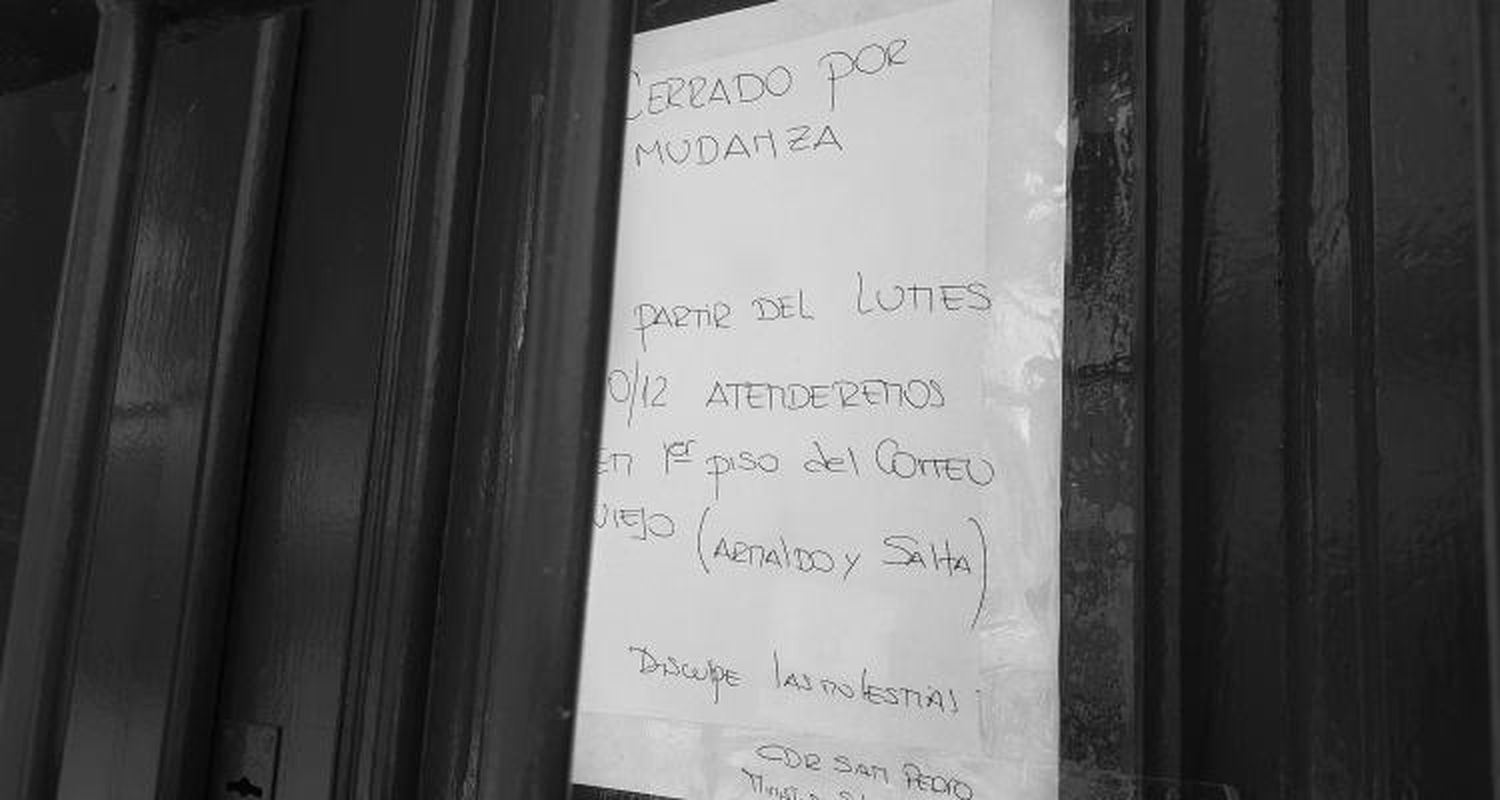 CERRADO POR
MUDANZA
PARTIR DEL LUNES
0/12 ATENDEREMOS
EN 1er piso del CORREO
VIEJO (ARNALDO y SALTA)
DISCULPE LAS MOLESTIAS
CDR SAN PEDRO